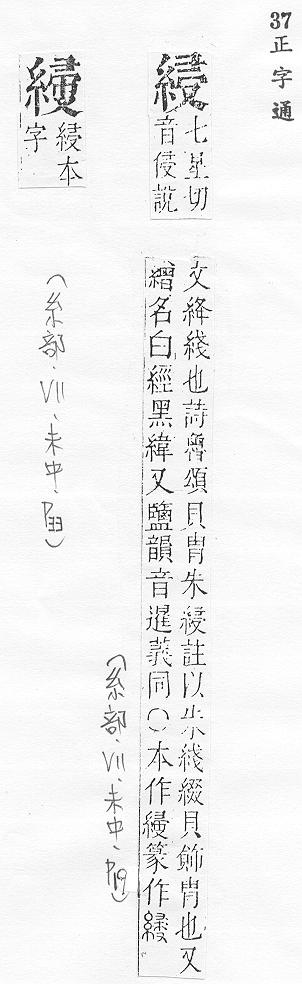 37
正字通
綅
七星切
音侵說
文絳綫也詩魯頌貝冑朱綅註以朱綫綴貝飾冑也又
繒名白經黑緯又鹽韻音暹義同〇本作篆作
(糸部·VII·未中·)
綅本
字
(糸部·VII·未中·)